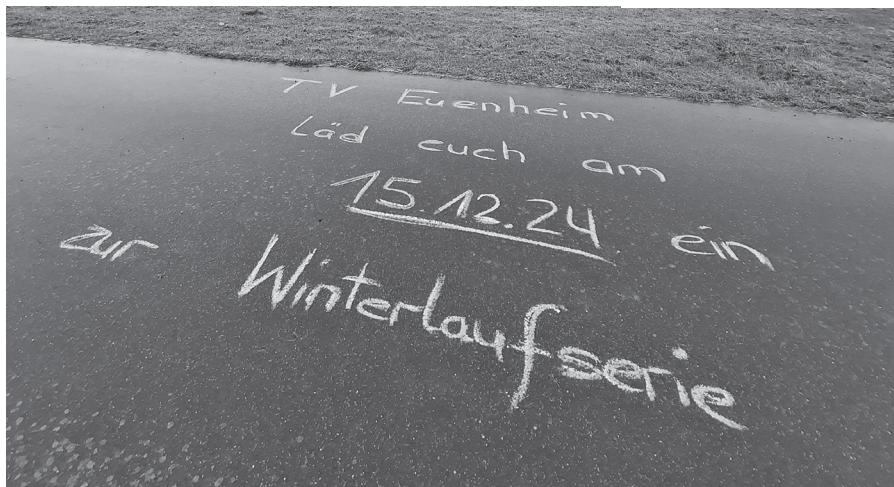 TV Euenheim
Läd euch am
15.12.24 ein
zur Winterlaufserie